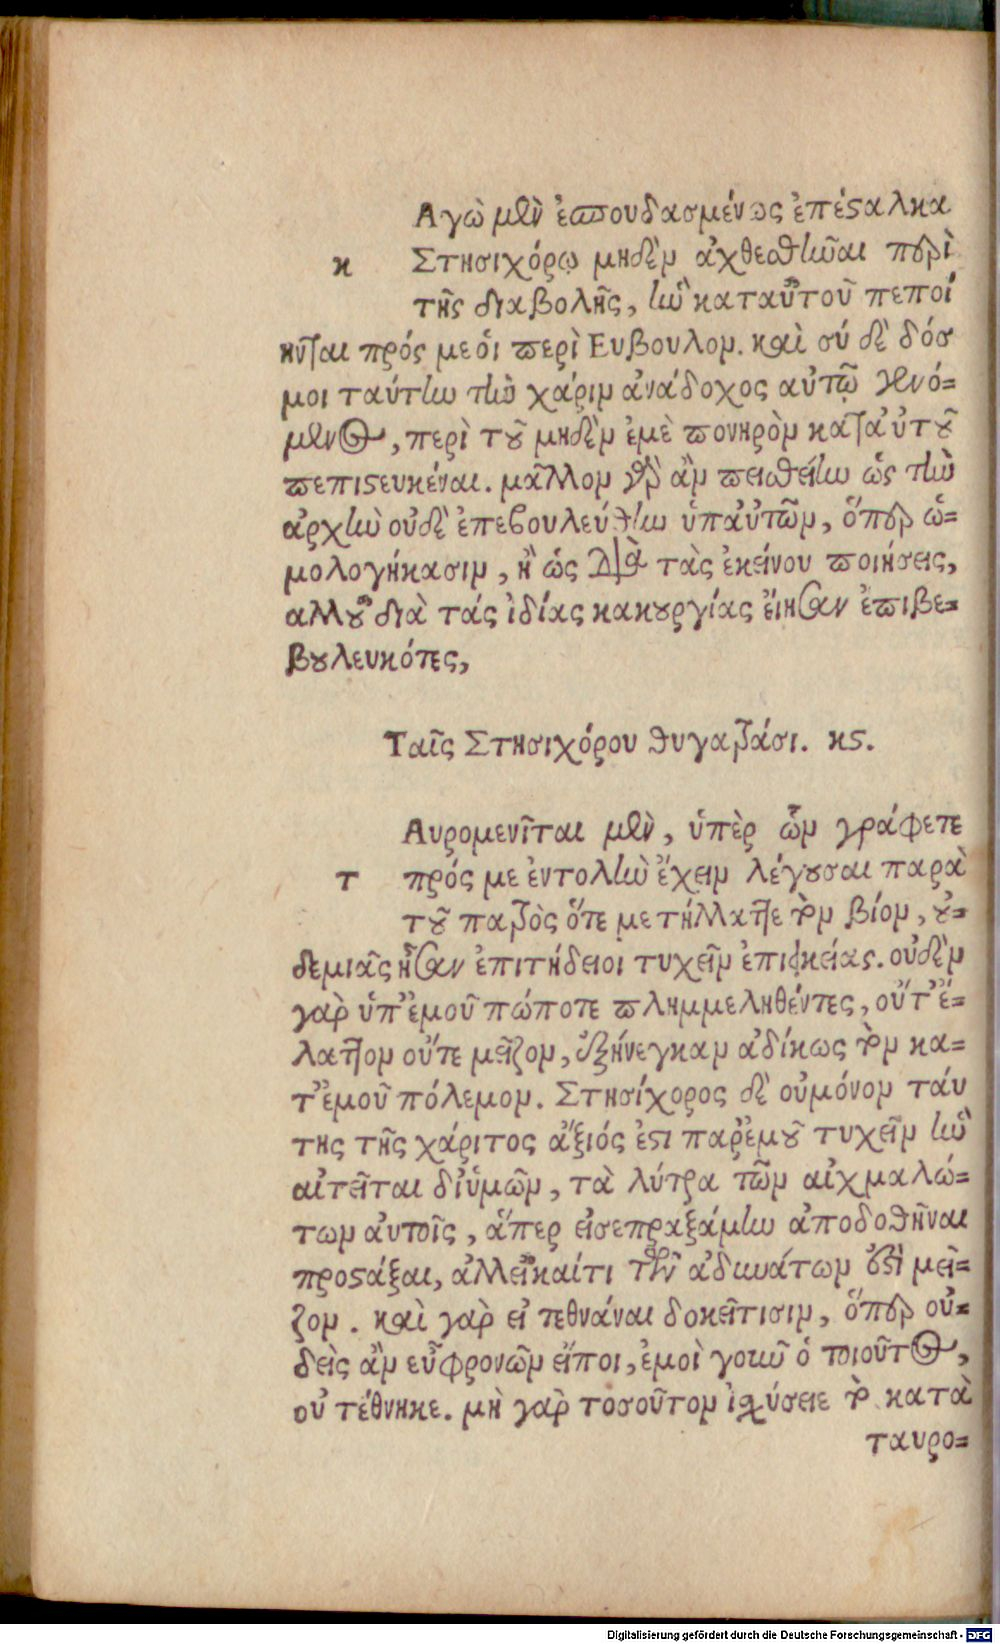 Αγὼ μὲν ἐσπουδασμένως ἐπέςαλκα
κ Στησιχόρῳ μηδὲν ἀχθεσθῆναι περὶ
τῆς διαβολῆς, ἣν καταὐτοῦ πεποί
ηνται πρός με οἱ περὶ Ευβουλον. καὶ σύ δὲ δός
μοι ταύτην τὴν χάριν ἀνάδοχος αὐτῷ γενό=
μενος, περὶ τοῦ μηδὲν ἐμὲ πονηρὸν κατ' αὐτοῦ
πεπιςευκέναι. μᾶλλον γὰρ ἂν πεισθείην ὡς τὴν
ἀρχὴν οὐδὲ ἐπεβουλεύθην ὑπ' αὐτῶν, ὅπερ ὡ=
μολογήκασιν, ἢ ὡς διὰ τὰς ἐκείνου ποιήσεις,
αλλ' οὐ διὰ τάς ἰδίας κακουργίας εἴησαν ἐπιβε=
βουλευκότες,
Ταῖς Στησιχόρου θυγατράσι. κς.
Αυρομενῖται μὲν, ὑπὲρ ὧν γράφετε
τ πρός με ἐντολὴν ἔχειν λέγουσαι παρὰ
τοῦ πατρὸς ὅτε μετήλλαττε τὸν βίον, οὐ=
δεμιᾶς ἦσαν ἐπιτήδειοι τυχεῖν ἐπιεικείας. οὐδὲν
γὰρ ὑπ' ἐμοῦ πώποτε πλημμεληθέντες, οὔτ' ἔ=
λαττον οὔτε μεῖζον, ἐξήνεγκαν αδίκως τὸν κα=
τ' ἐμοῦ πόλεμον. Στησίχορος δὲ οὐμόνον ταύ
της τῆς χάριτος ἄξιός ἐςι παρ' ἐμοῦ τυχεῖν ἣν
αἰτεῖται δι' ὑμῶν, τὰ λύτρα τῶν αἰχμαλώ=
των ἀυτοῖς, ἅπερ εἰσεπραξάμην αποδοθῆναι
προςάξαι, ἀλλ' εἰ καίτι τῶν αδυνάτων ἐςὶ μεῖ=
ζον. καὶ γὰρ εἰ τεθνάναι δοκεῖ τισιν, ὅπερ οὐ=
δεὶς ἂν εὖ φρονῶν εἴποι, ἐμοὶ γοῦν ὁ τοιοῦτος,
οὐ τέθνηκε. μὴ γὰρ τοσοῦτον ἰσχύσειε τὸ κατὰ
ταυρο=
Digitalisierung gefördert durch die Deutsche Forschungsgemeinschaft - DFG